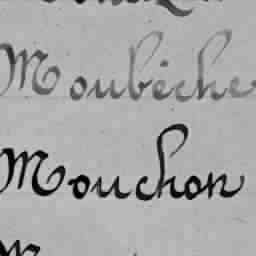 Moubèche
Mouchon